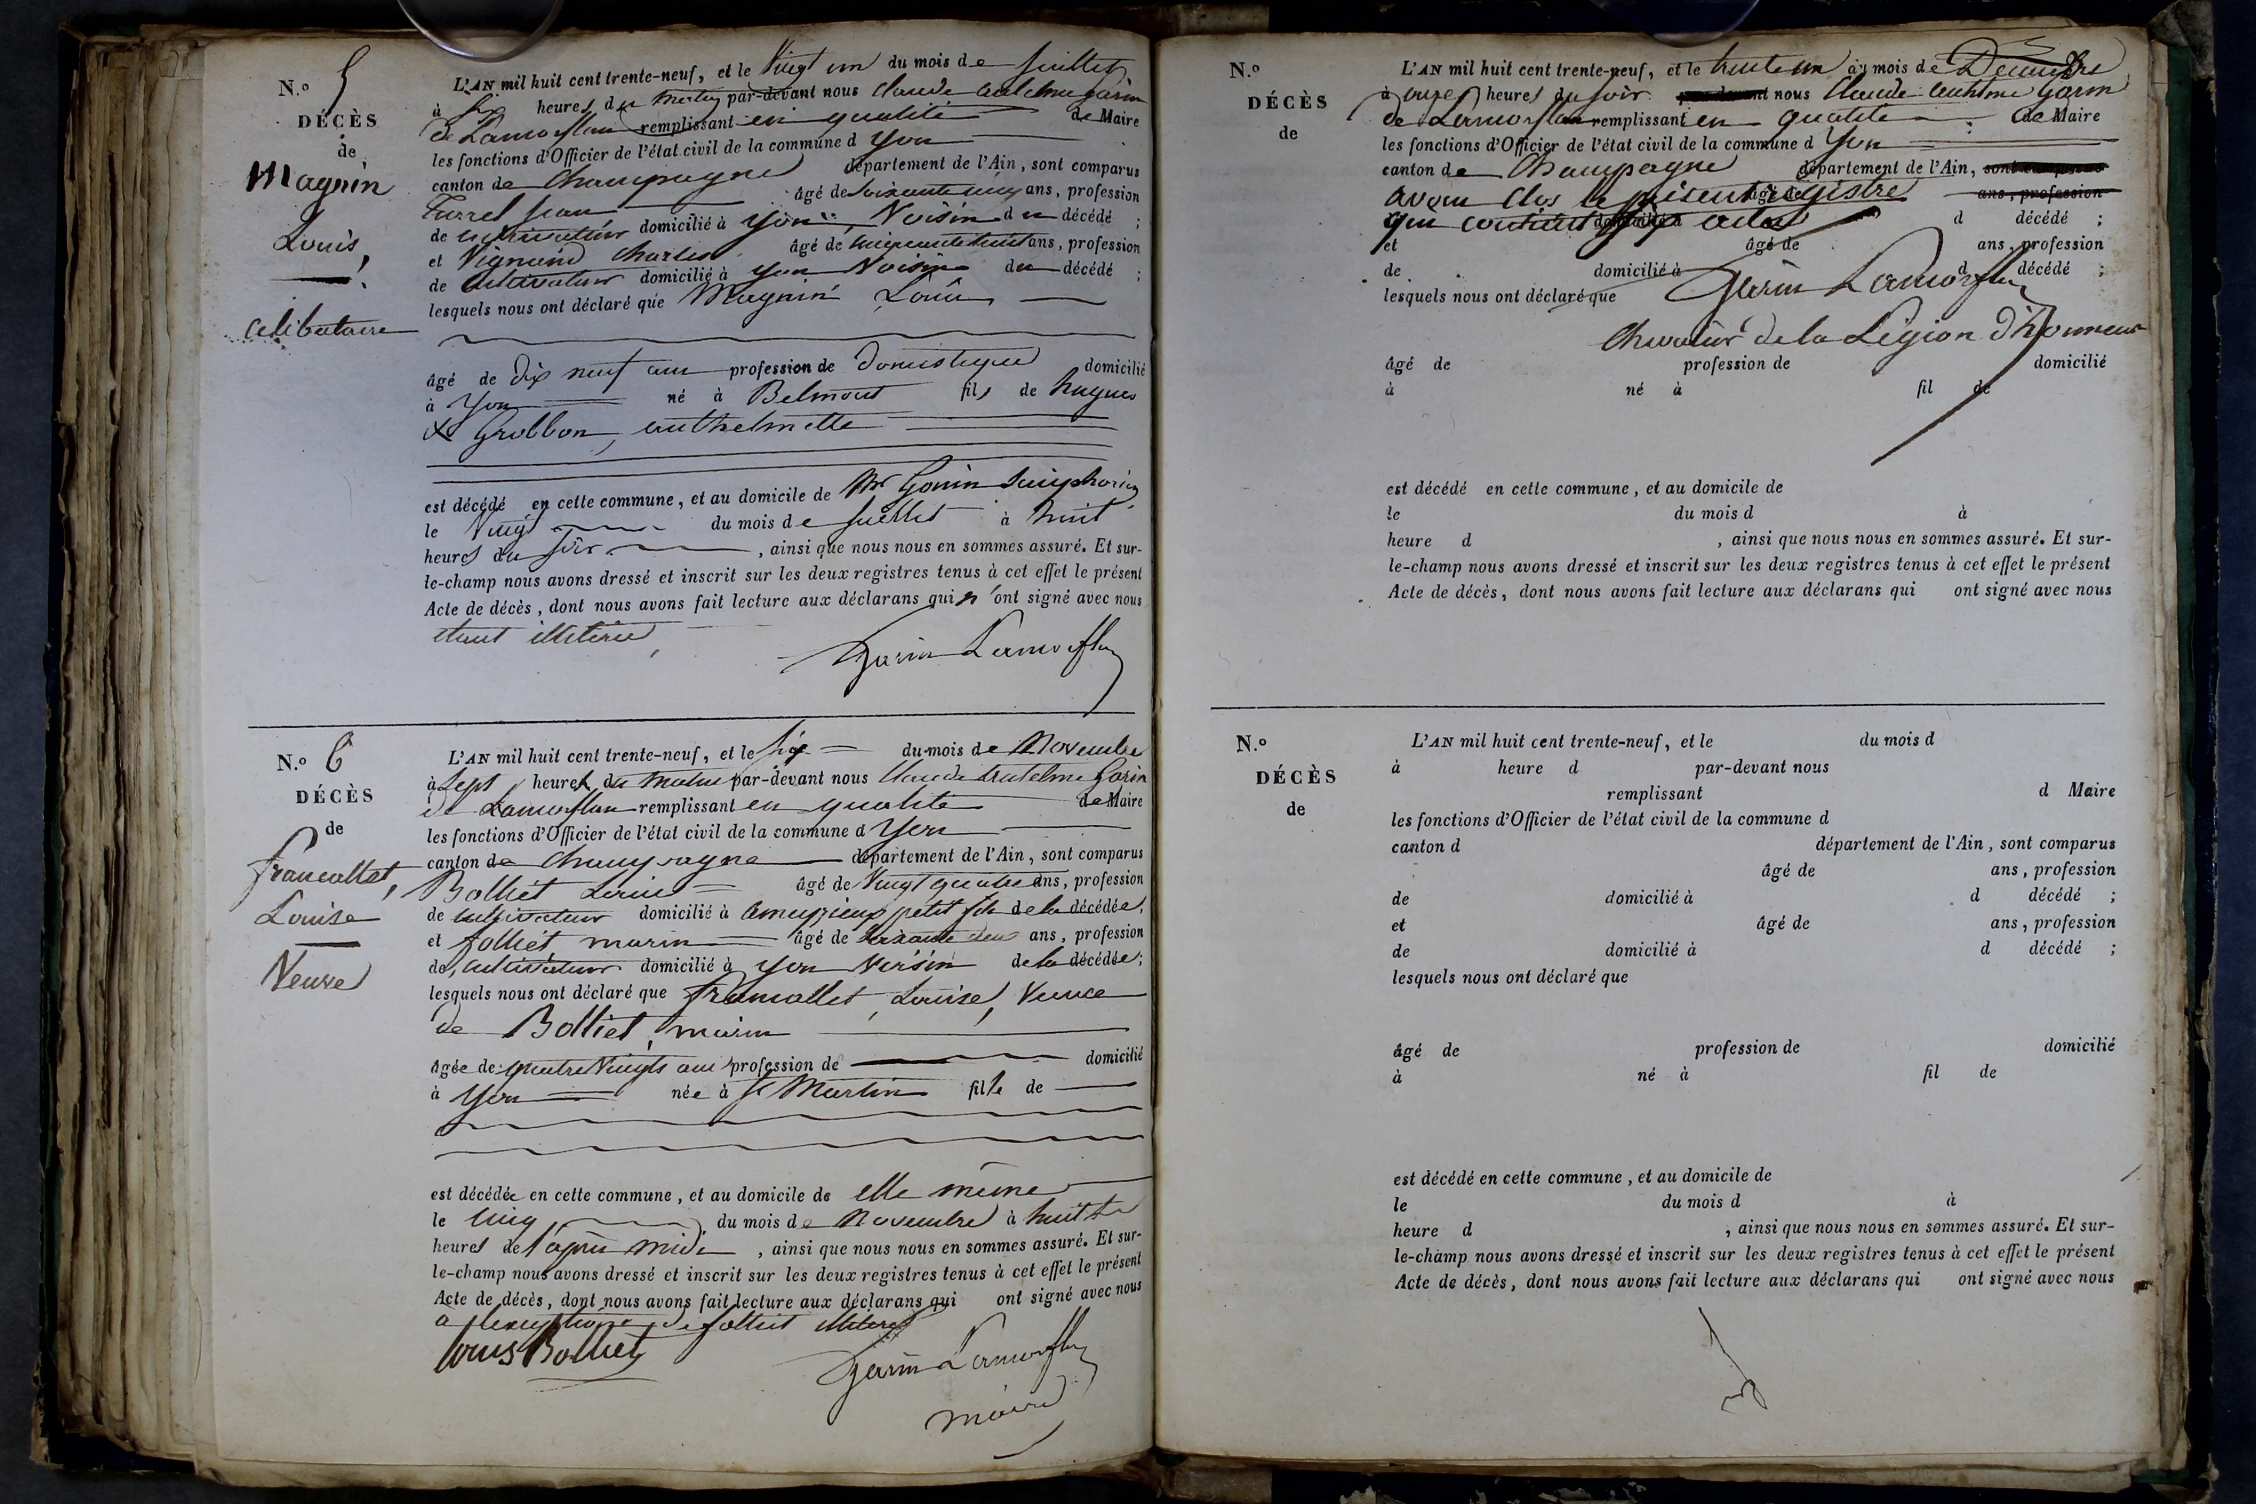 N.º 5
DÉCÈS
de
Magnin
Louis,
célibataire
L'AN mil huit cent trente-neuf, et le Vingt un du mois de Juillet
à Six heures du matin par-devant nous Claude Antelme Garin
de Lamorflan remplissant en qualité de Maire
les fonctions d'Officier de l'état civil de la commune d Yon
canton de Champagne département de l'Ain, sont comparus
Furret Jean âgé de soixante cinq ans, profession
de cultivateur domicilié à Yon, Voisin du décédé ;
et Vignand Charles âgé de cinquante huit ans, profession
de cultivateur domicilié à Yon Voisin du décédé ;
lesquels nous ont déclaré que Magnin Louis
âgé de dix neuf ans profession de Domestique domicilié
à Yon né à Belmont fils de hugues
et Grobbon, anthelmette
est décédé en cette commune, et au domicile de Mr Gonin Simphorien
le Vingt du mois de Juillet à huit
heures du soir, ainsi que nous nous en sommes assuré. Et sur-
le-champ nous avons dressé et inscrit sur les deux registres tenus à cet effet le présent
Acte de décès, dont nous avons fait lecture aux déclarans qui n'ont signé avec nous
étant illitérés,
Garin Lamorflan
N.º 6
DÉCÈS
de
francallet,
Louise
Veuve
L'AN mil huit cent trente-neuf, et le Six du mois de Novembre
à Sept heures du matin par-devant nous Claude Antelme Garin
de Lamorflan remplissant en qualité de Maire
les fonctions d'Officier de l'état civil de la commune d Yon
canton de Champagne département de l'Ain, sont comparus
Bolliet Louis âgé de Vingt quatre ans, profession
de cultivateur domicilié à ameyzieux petit fils de la décédée,
et folliet marin âgé de soixante deux ans, profession
de cultivateur domicilié à Yon Voisin de la décédée ;
lesquels nous ont déclaré que francallet, Louise, Veuve
de Bolliet, marin
âgée de quatre Vingts ans profession de domicilié
à Yon née à St Martin fille de
est décédée en cette commune, et au domicile de elle même
le cinq du mois de Novembre à huit
heures de l'après midi, ainsi que nous nous en sommes assuré. Et sur-
le-champ nous avons dressé et inscrit sur les deux registres tenus à cet effet le présent
Acte de décès, dont nous avons fait lecture aux déclarans qui ont signé avec nous
à l'exception de folliet illitéré
Louis Bolliet
Garin Lamorflan
maire
N.º
DÉCÈS
de
L'AN mil huit cent trente-neuf, et le trente un du mois de Décembre
à onze heures du soir nous Claude Anthelme Garin
de Lamorflan remplissant en qualité de Maire
les fonctions d'Officier de l'état civil de la commune d Yon
canton de Champagne département de l'Ain, sont comparus
avons clos le présent registre âgé de ans, profession
qui contient six actes domicilié à d décédé ;
et âgé de ans, profession
de domicilié à d décédé ;
lesquels nous ont déclaré que Garin Lamorflan
Chevalier de la Légion d'honneur
âgé de profession de domicilié
à né à fil de
est décédé en cette commune, et au domicile de
le du mois d à
heure d , ainsi que nous nous en sommes assuré. Et sur-
le-champ nous avons dressé et inscrit sur les deux registres tenus à cet effet le présent
Acte de décès, dont nous avons fait lecture aux déclarans qui ont signé avec nous
N.º
DÉCÈS
de
L'AN mil huit cent trente-neuf, et le du mois d
à heure d par-devant nous
remplissant d Maire
les fonctions d'Officier de l'état civil de la commune d
canton d département de l'Ain, sont comparus
âgé de ans, profession
de domicilié à d décédé ;
et âgé de ans, profession
de domicilié à d décédé ;
lesquels nous ont déclaré que
âgé de profession de domicilié
à né à fil de
est décédé en cette commune, et au domicile de
le du mois d à
heure d , ainsi que nous nous en sommes assuré. Et sur-
le-champ nous avons dressé et inscrit sur les deux registres tenus à cet effet le présent
Acte de décès, dont nous avons fait lecture aux déclarans qui ont signé avec nous